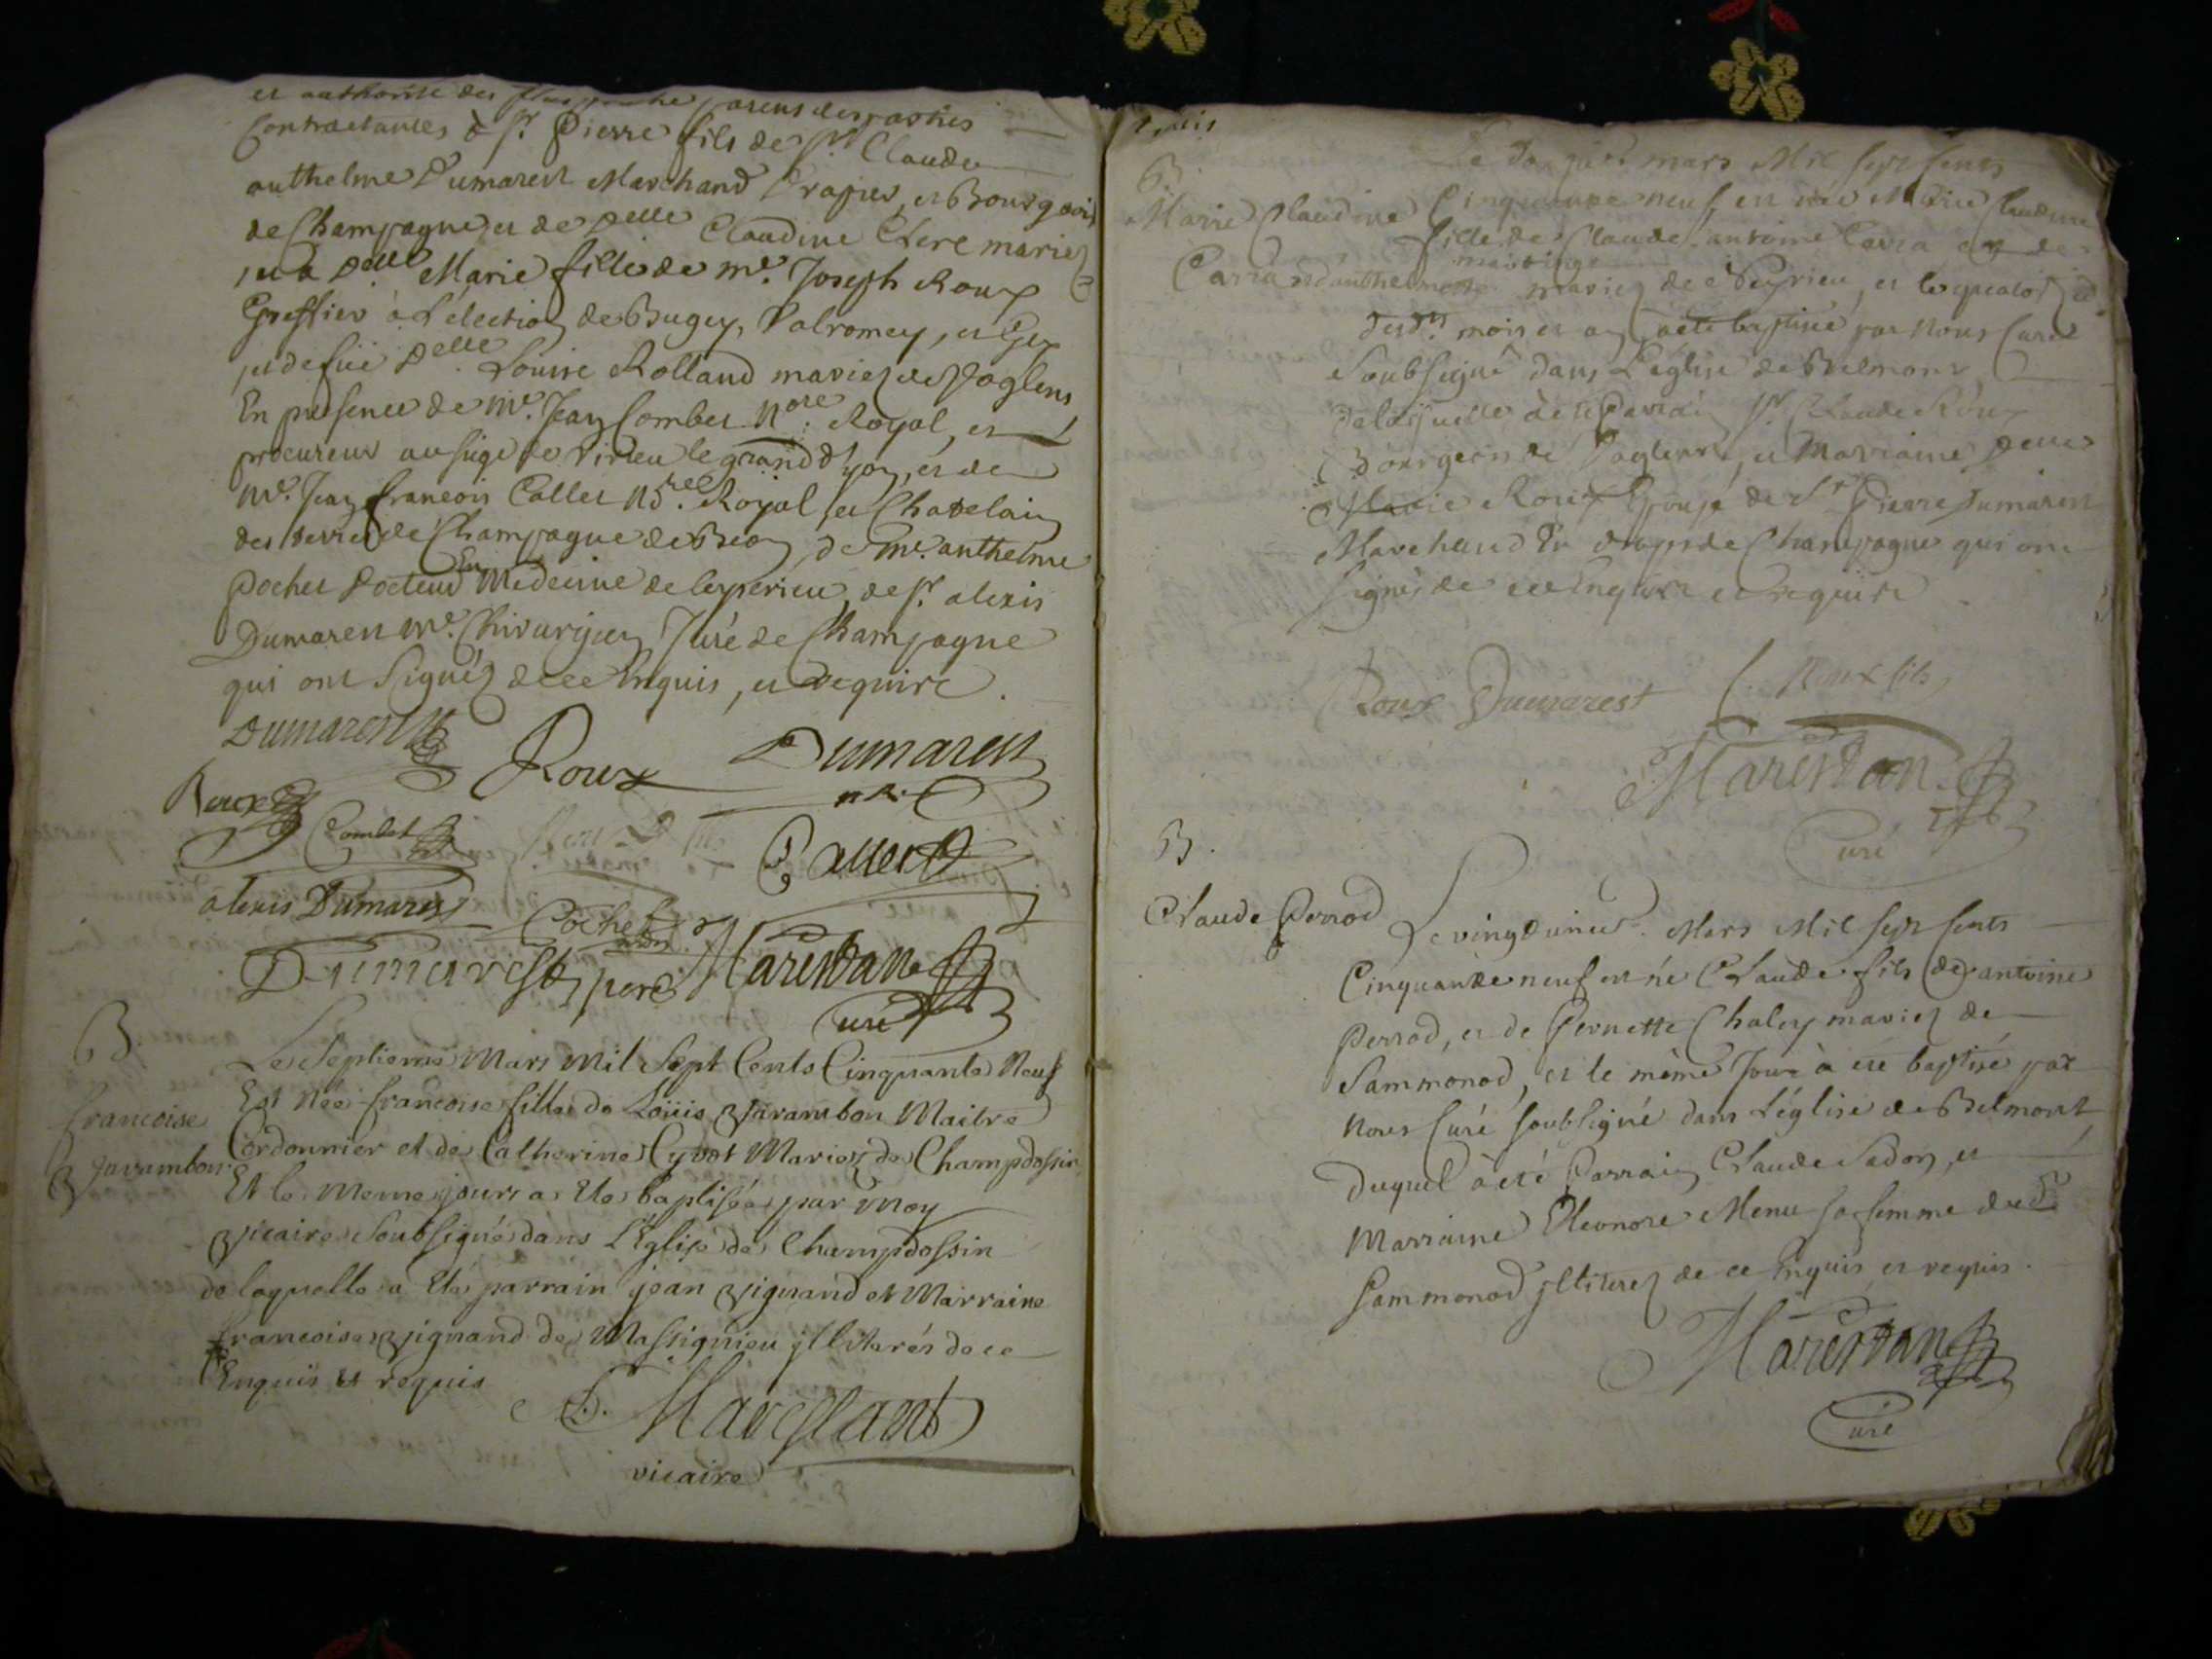 et authorité des plus proche parens des parties
Contractantes à Sr. Pierre fils de Sr. Claude
anthelme Dumarest Marchand Drapier, et Bourgeois
de Champagne et de Delle Claudine Clerc mariez
et à Delle Marie fille de me. Joseph Roux
Greffier à L'élection de Bugey, Valromey, et Gex
et de füe Delle. Louise Rolland mariez de Voglens
En presence de me. Jean Combet Nore. Royal, et
procureur au siège de Virieu le grand d'
me. Jean francois Callet Nore. Royal, et Chatelain
des terres de Champagne de Beon, de me. anthelme
Pochet Docteur En Medecine de Ceyzerieu, de sr. alexis
Dumarest me. Chirurgien Juré de Champagne
qui ont Signéz de ce Enquis, et require.
Dumarest
Roux
Dumarest
Roux
Combet
Callet
alexis Dumarest
Pochet
Dumarest, pere
Marestan
Curé
B
francoise
Varambon
Le Septieme Mars Mil Sept Cents Cinquante Neuf
Est Née francoise fille de Loüis Varambon Maitre
Cordonnier et de Catherine Cyvot Mariez de Champdossin
Et le Meme jour a Eté baptisée par Moy
Vicaire Soubsigné dans L'Eglise de Champdossin
de laquelle a Eté parrain jean Vignand et Marraine
francoise Vignand de Massignieu jllitarés de ce
Enquis et requis
Marestant
vicaire
B.
Marie Claudine
Carra
Le mars Mil sept cents
Cinquante neuf, est née Marie Claudine
fille de Claude antoine Carra et de
anthelmette martinge mariez de Neyrieu, et le
desdts. mois et an à eté baptisée par Nous Curé
Soubsigné dans L'église de Belmont
de laquelle à eté Parrain Sr. Claude Roux
Bourgeois de Voglens, et Marraine Delle
Marie Roux Epouse de Sr. Pierre Dumarest
Marchand En draps de Champagne qui ont
signés de ce Enquis et require
Roux Dumarest
C. Roux fils
Marestan
Curé
B.
Claude Perrod
Le vingt unie. Mars Mil sept cents
Cinquante neuf est né Claude fils de antoine
Perrod, et de Pernette Chaley mariez de
Sammonod, et le même Jour à eté baptisé par
Nous Curé soubsigné dans L'église de Belmont
duquel à eté Parrain Claude Sadon, et
Marraine Eleonore Menu sa femme dudt
Sammonod jllitérez de ce Enquis et requis.
Marestan
Curé